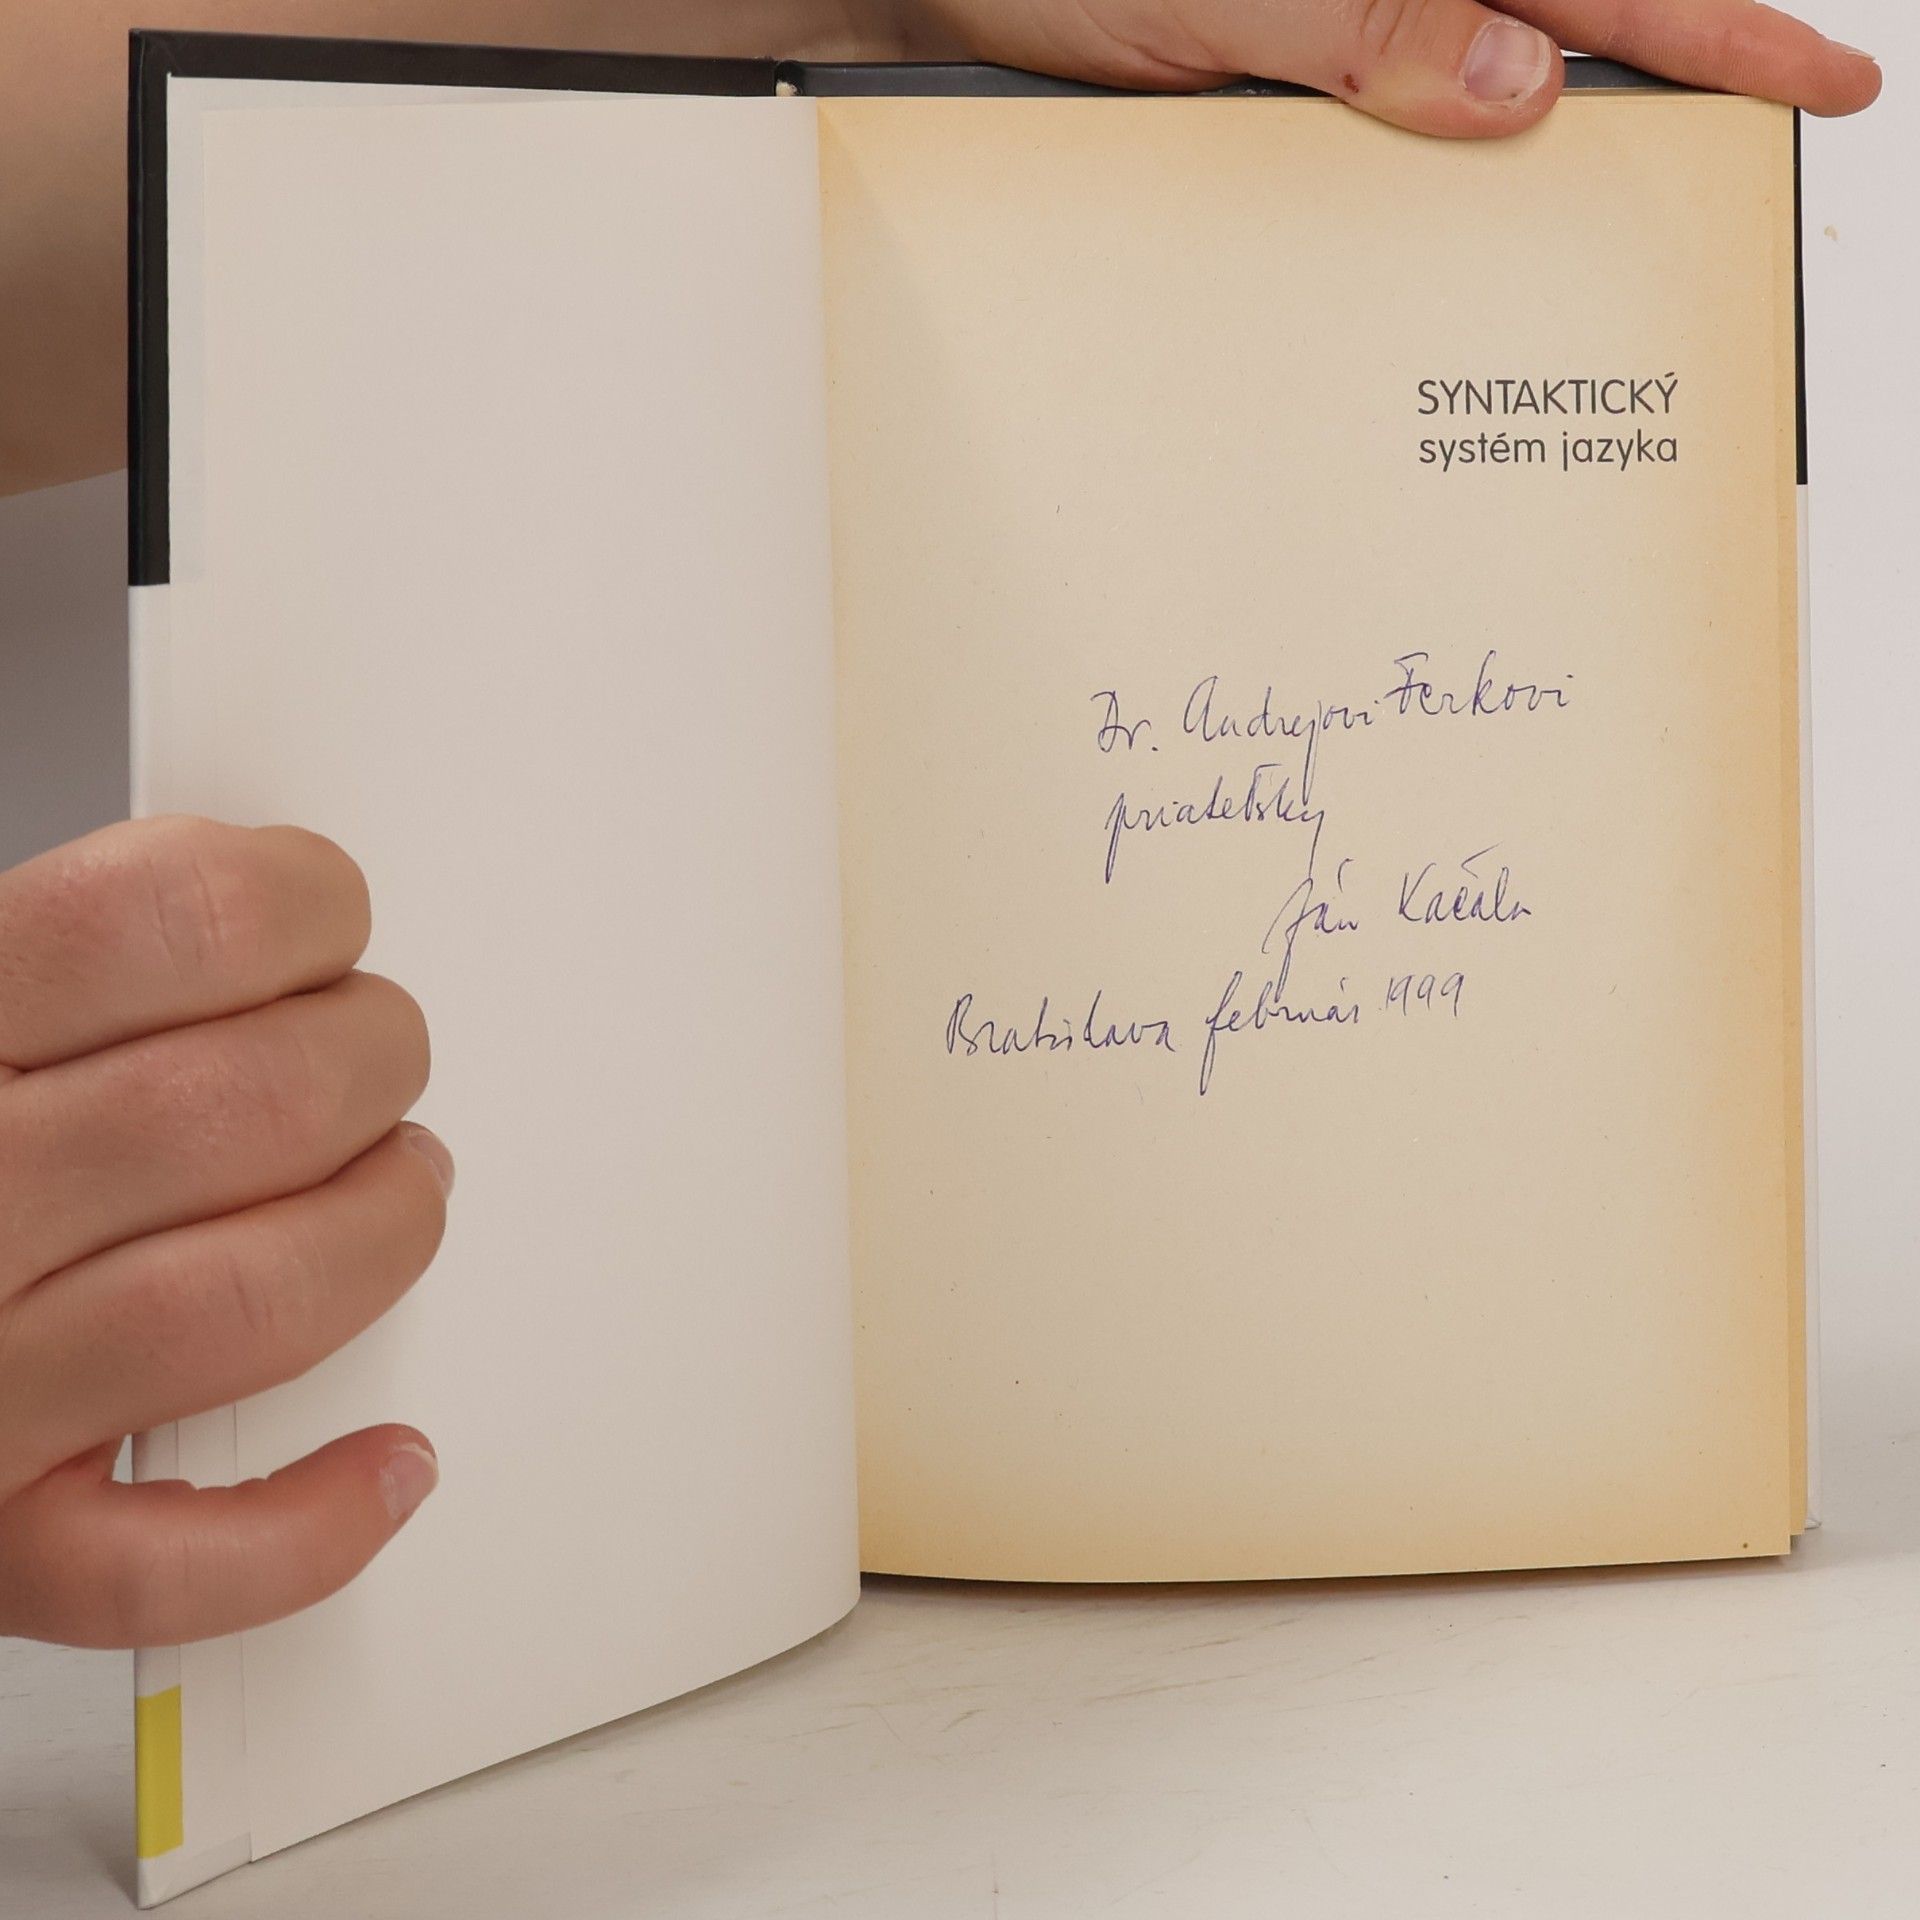 SYNTAKTICKÝ
systém jazyka
Dr. Andrejovi Ferkovi
priateľsky
Ján Kačala
Bratislava február 1999